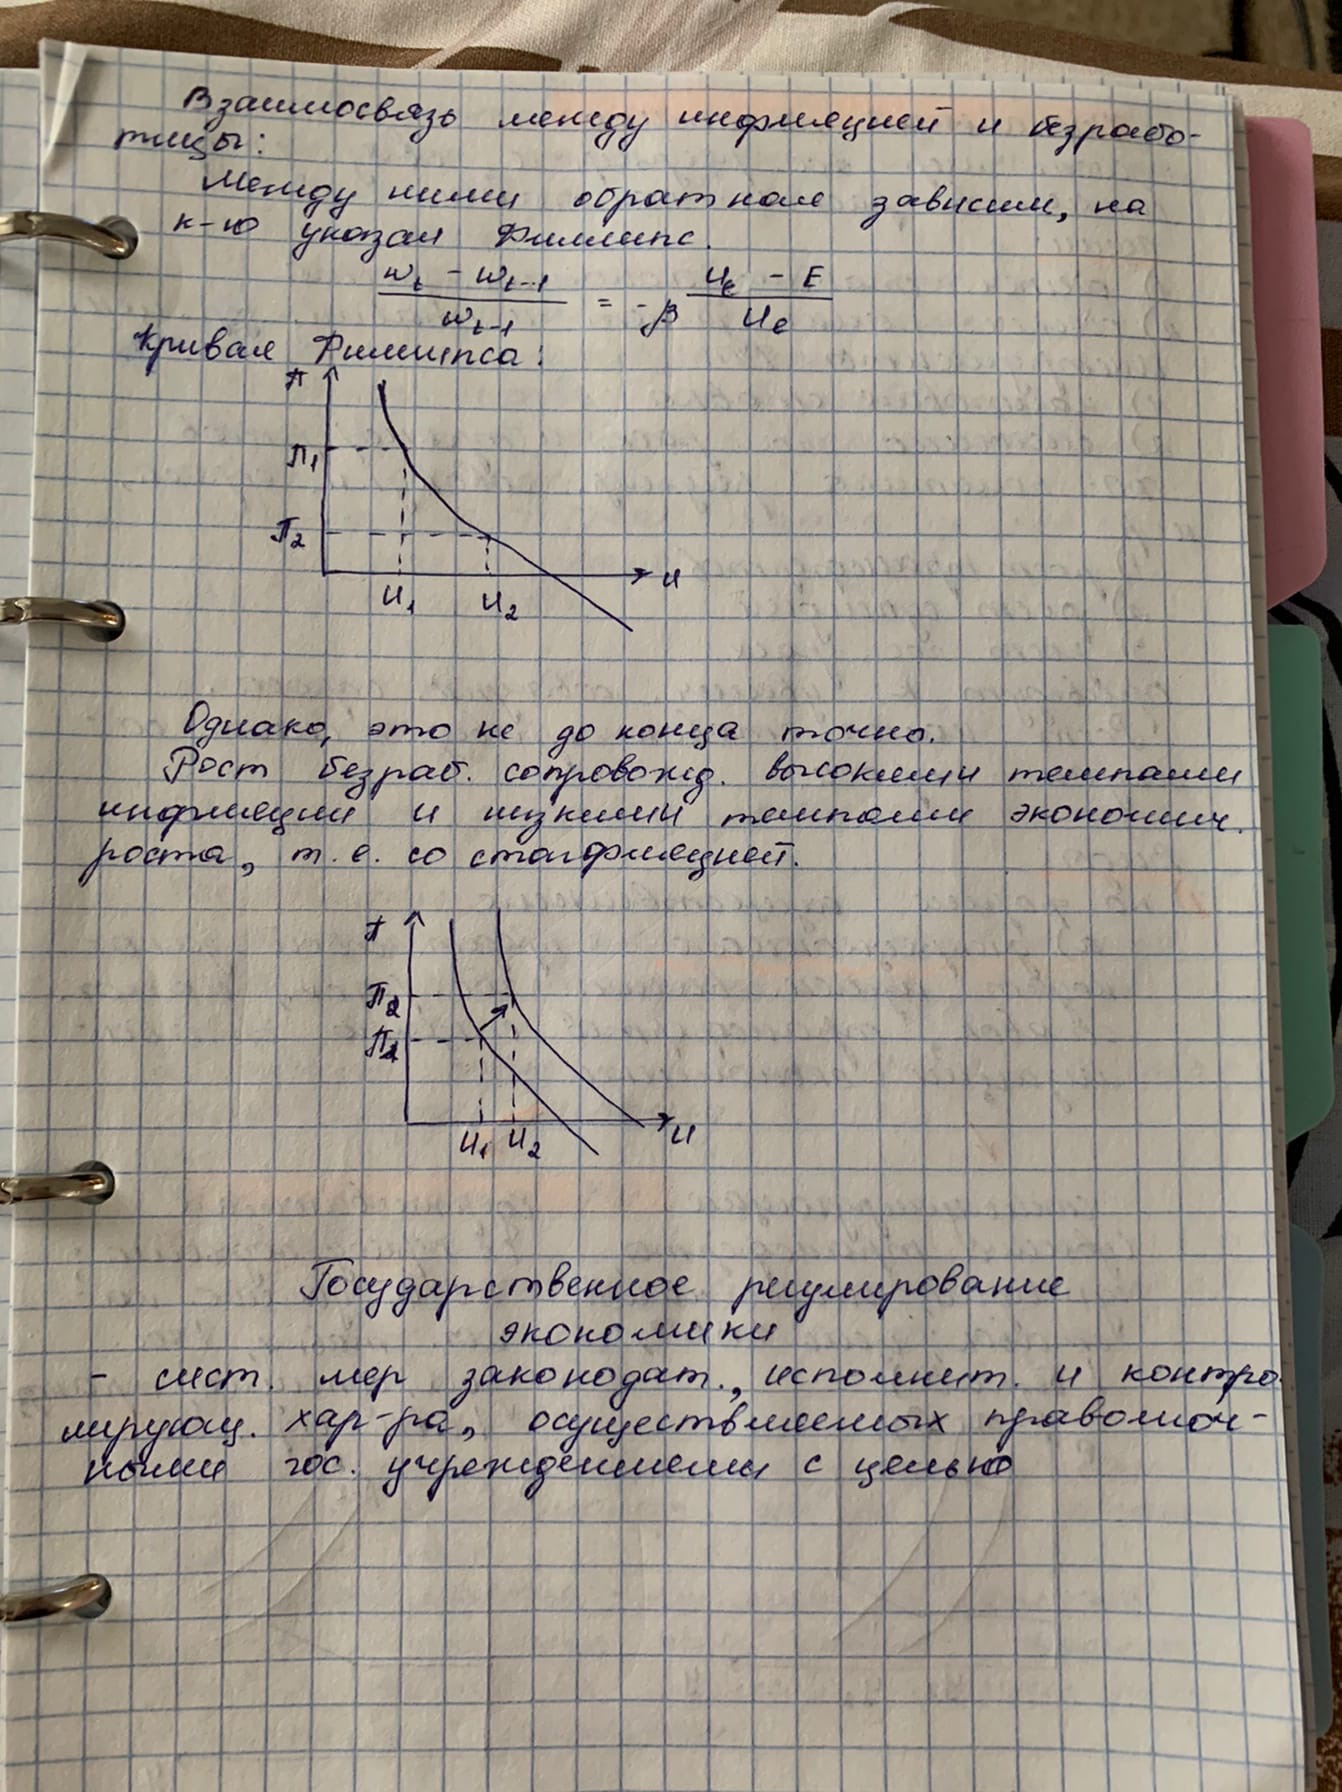 Взаимосвязь между инфляцией и безрабо-
тицы:
Между ними обратная зависим, на
к-ю указал Филлипс.
(w_t - w_{t-1}) / w_{t-1} = -β (u_t - E) / u_e
Кривая Филлипса:
π
π₁
π₂
u₁ u₂ u
Однако, это не до конца точно.
Рост безраб. сопровожд. высокими темпами
инфляции и низкими темпами экономич.
роста, т.е. со стагфляцией.
π
π₂
π₁
u₁ u₂ u
Государственное регулирование
экономики
- сист. мер законодат., исполнит. и контро
лирующ. хар-ра, осуществляемых правомоч-
ными гос. учреждениями с целью